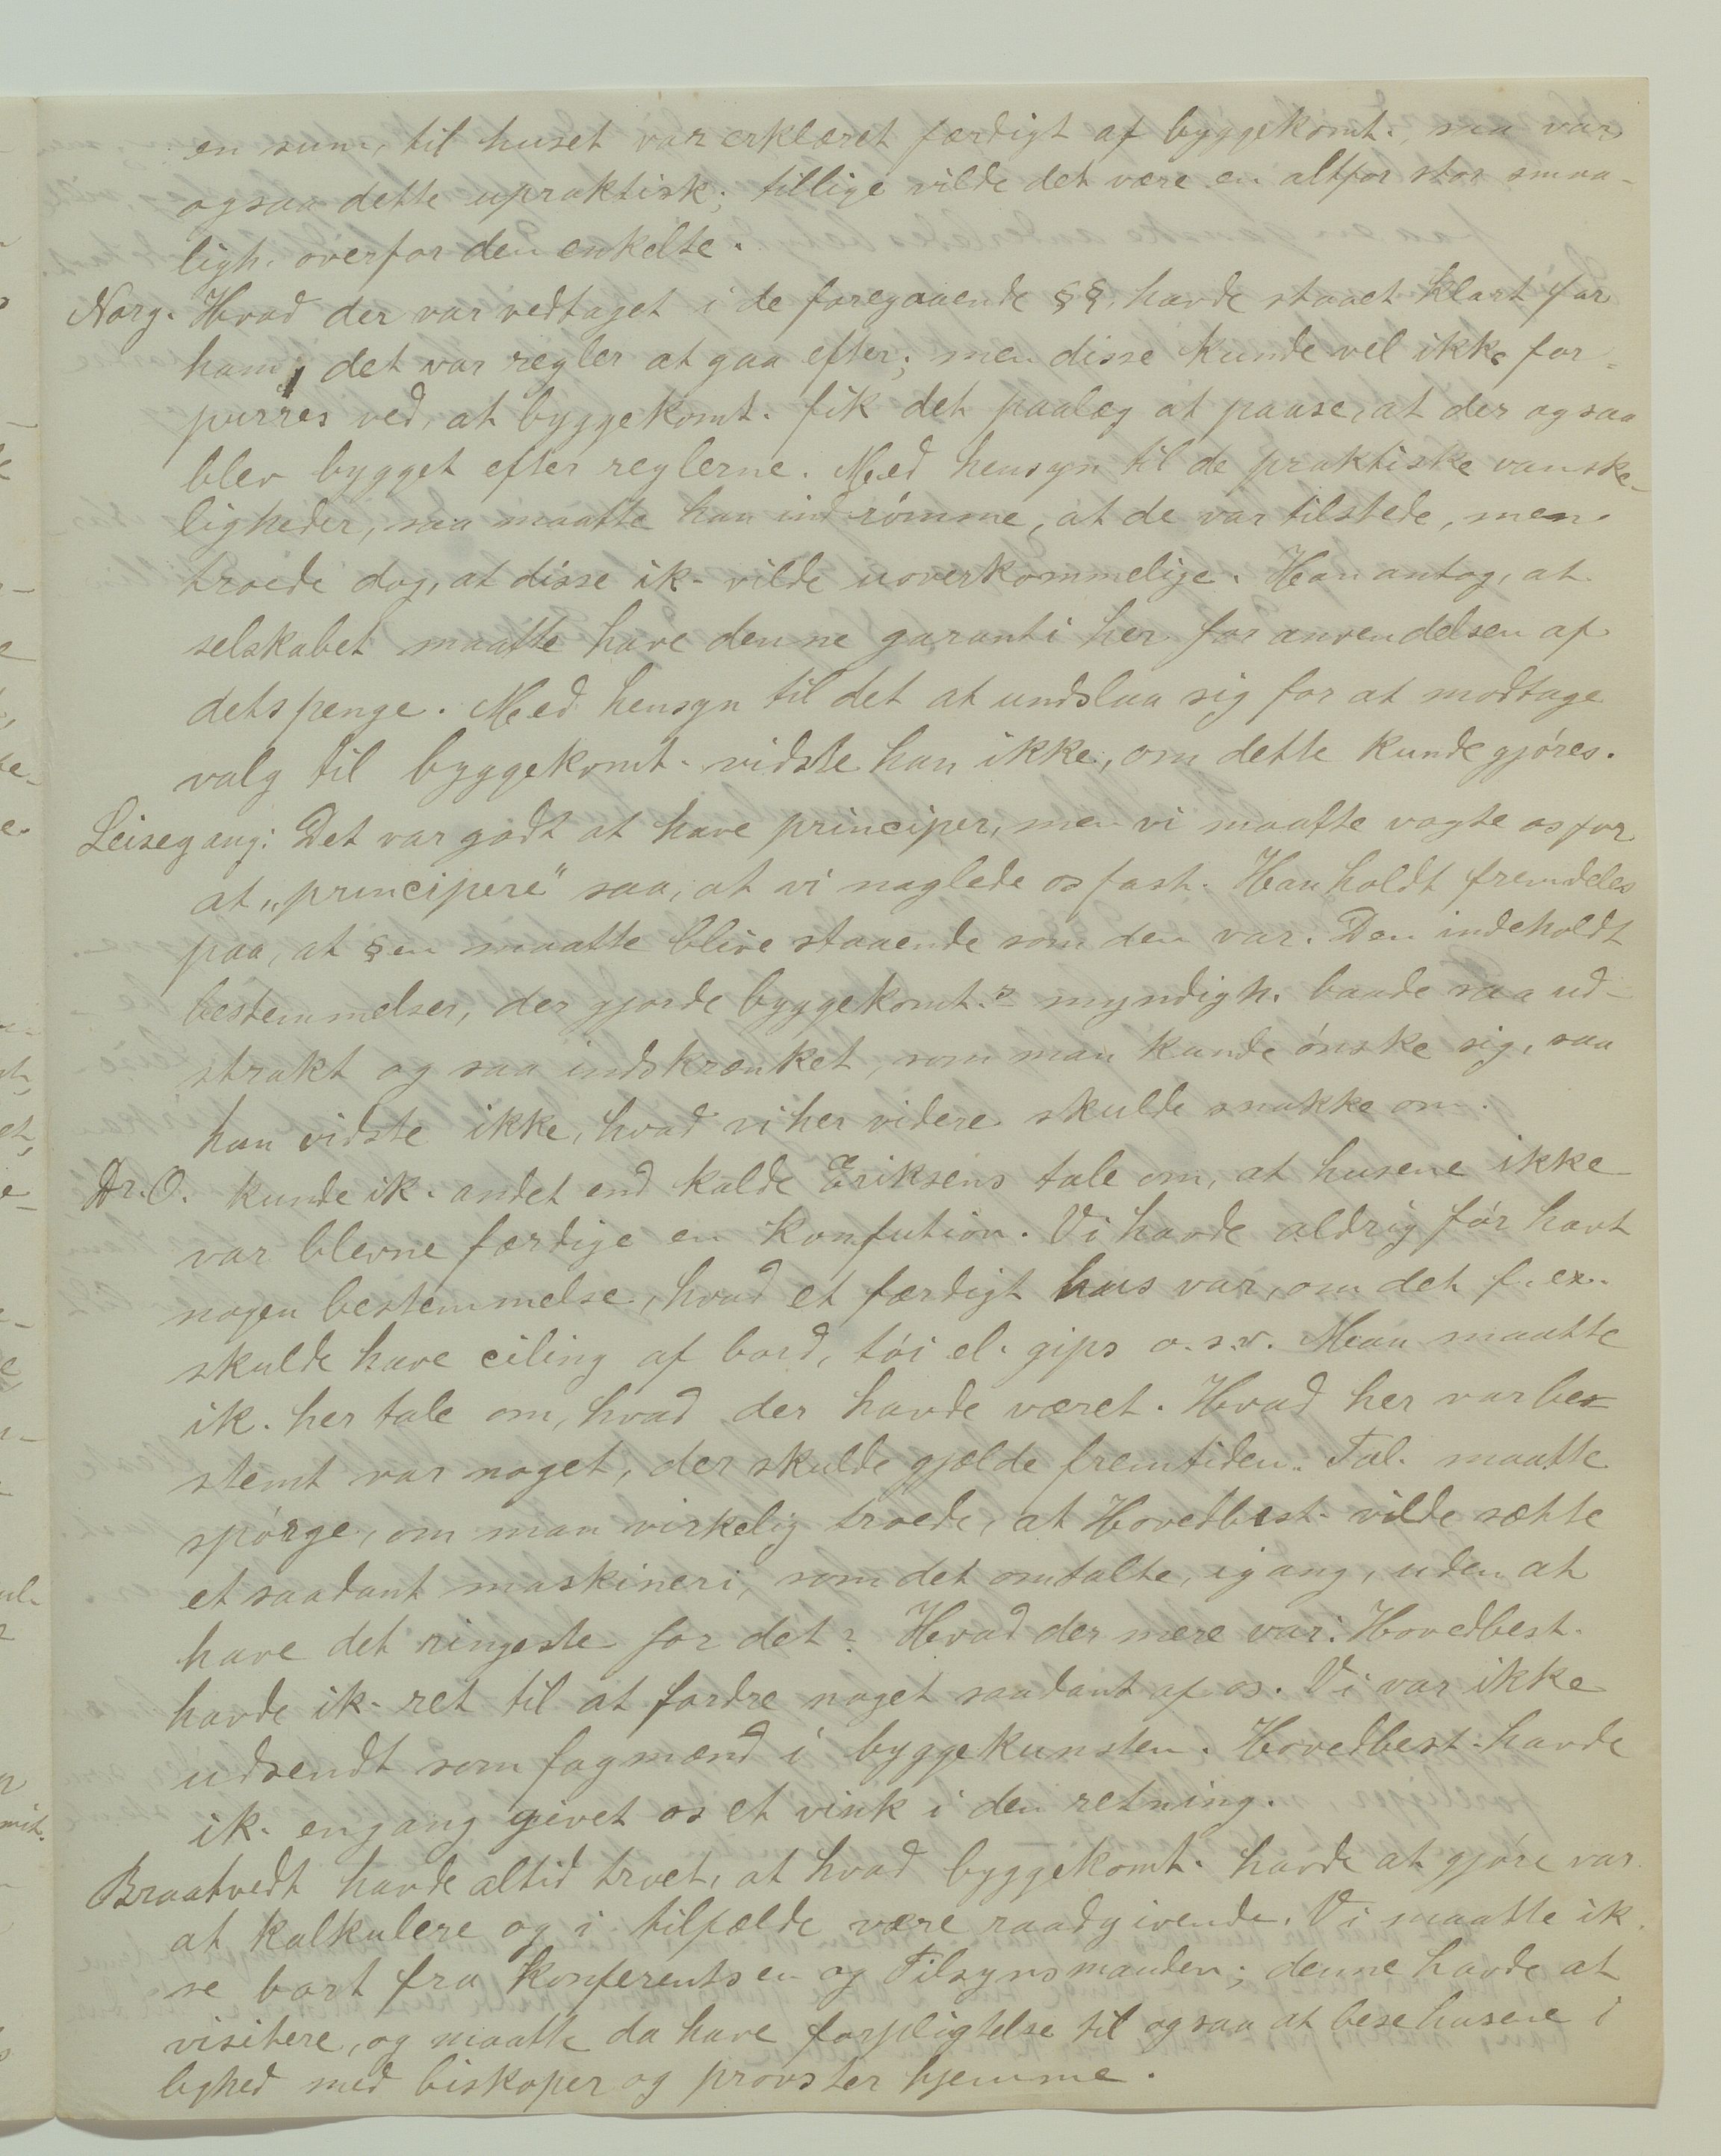 en sum, til huset var erklæret færdigt af byggekomt., saa var
ogsaa dette upraktisk; tillige vilde det være en altfor stor smaa-
ligh. overfor den enkelte.
Norg. Hvad der var vedtaget i de foregaaende §§, havde staaet klart for
ham, det var regler at gaa efter; men disse kunde vel ikke for-
purres ved, at byggekomt. fik det paalæg at paase, at der ogsaa
blev bygget efter reglerne. Med hensyn til de praktiske vanske-
ligheder, saa maatte han indrömme, at de var tilstede, men
troede dog, at disse ik. vilde uoverkommelige. Han antog, at
selskabet maatte have denne garanti her for anvendelsen af
dets penge. Med hensyn til det at undslaa sig for at modtage
valg til byggekomt. vidste han ikke, om dette kunde gjöres.
Leisegang: Det var godt at have principer, men vi maatte vogte os for
at „principere" saa, at vi naglede os fast. Han holdt fremdeles
paa, at §en maatte blive staaende som den var. Den indeholdt
bestemmelser, der gjorde byggekomt.s myndigh. baade saa ud-
strakt og saa indskrænket, som man kunde önske sig, saa
han vidste ikke, hvad vi her videre skulde snakke om.
Dr. O. kunde ik. andet end kalde Eriksens tale om, at husene ikke
var blevne færdige en konfution. Vi havde aldrig för havt
nogen bestemmelse, hvad et færdigt hus var, om det f. ex.
skulde have ciling af bord, töi el. gips o. s. v. Man maatte
ik. her tale om, hvad der havde været. Hvad her var be-
stemt var noget, der skulde gjælde fremtiden. Tal. maatte
spörge, om man virkelig troede, at Hovedbest. vilde sætte
et saadant maskineri, som det omtalte, igang, uden at
have det ringeste for det? Hvad der mere var: Hovedbest.
havde ik. ret til at fordre noget saadant af os. Vi var ikke
udsendt som fagmænd i byggekunsten. Hovedbest. havde
ik. engang givet os et vink i den retning.
Braatvedt havde altid troet, at hvad byggekomt. havde at gjöre var
at kalkulere og i tilfælde være raadgivende. Vi maatte ik.
se bort fra Konferentsen og Tilsynsmanden; denne havde at
visitere, og maatte da have forpligtelse til ogsaa at bese husene i
lighed med biskoper og provster hjemme.